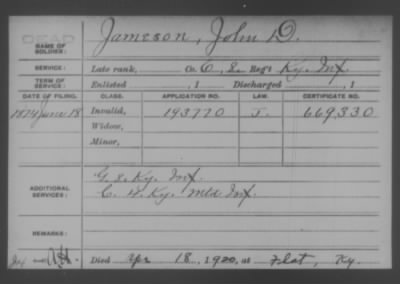 DEAD
Jameson, John D.
NAME OF SOLDIER:
SERVICE: Late rank, Co. C, 8 Reg't Ky. Inf.
TERM OF SERVICE: Enlisted , 1 Discharged , 1
DATE OF FILING. CLASS. APPLICATION NO. LAW. CERTIFICATE NO.
1874 June 18 Invalid, 193770 669,330
Widow,
Minor,
ADDITIONAL SERVICES: G. 8. Ky. Inf.
C. Ky. Mtd Inf.
REMARKS:
Died Apr 18, 1920, at Flat, Ky.